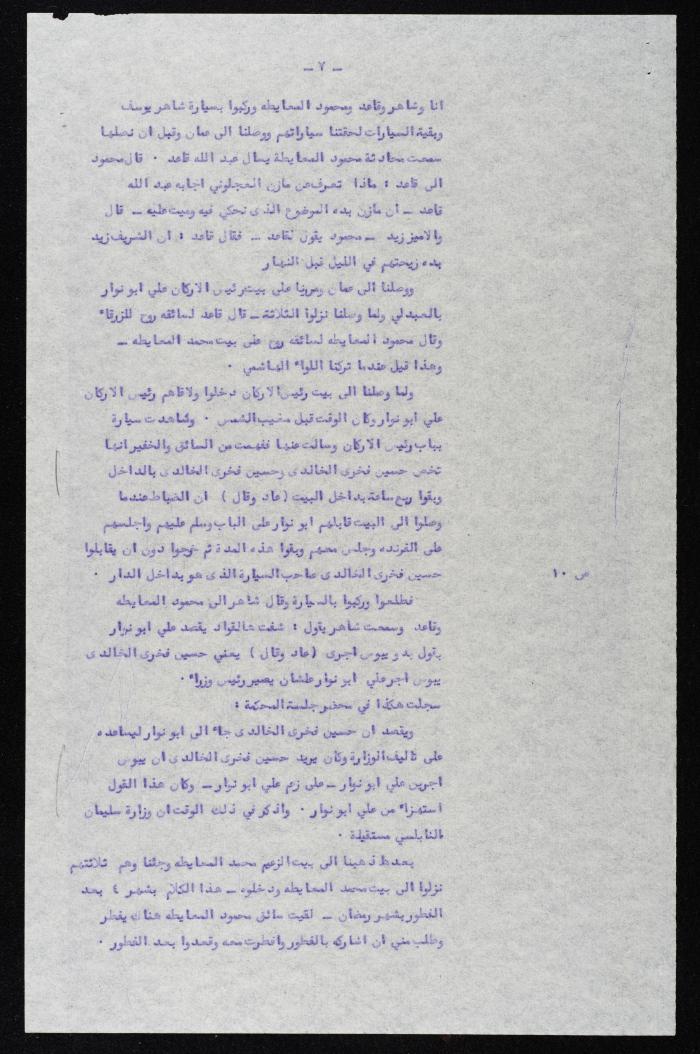 ـ ٧ ـ
انا وشاهر وقاعد ومحمود المعايطه وركبوا بسيارة شاهر يوسف
وبقية السيارات لحقتنا سياراتهم ووصلنا الى عمان وقبل ان نصلها
سمعت محادثة محمود المعايطة يسال عبد الله قاعد . قال محمود
الى قاعد : ماذا تعرف عن مازن العجلوني اجابه عبد الله
قاعد ـ أن مازن بده الموضوع الذى نحكي فيه وميت عليه ـ قال
والامير زيد ـ محمود يقول لقاعد ـ فقال قاعد : ان الشريف زيد
بده زيحتهم في الليل قبل النهار
ووصلنا الى عمان ومرينا على بيت رئيس الاركان علي ابو نوار
بالعبدلي ولما وصلنا نزلوا الثلاثة ـ قال قاعد لسائقه روح للزرقاء
وقال محمود المعايطه لسائقه روح على بيت محمد المعايطه ـ
وهذا قبل عندما تركنا اللواء الهاشمي .
ولما وصلنا الى بيت رئيس الاركان دخلوا ولاقاهم رئيس الاركان
علي ابو نوار وكان الوقت قبل مغيب الشمس . وشاهدت سيارة
بباب رئيس الاركان وسالت عنها ففهمت من السائق والخفير انها
تخص حسين فخرى الخالدى وحسين فخرى الخالدى بالداخل
وبقوا ربع ساعة بداخل البيت (عاد وقال ) ان الضباط عندما
وصلوا الى البيت قابلهم ابو نوار على الباب وسلم عليهم واجلسهم
على الفرنده وجلس معهم وبقوا هذه المدة ثم خرجوا دون ان يقابلوا
حسين فخرى الخالدى صاحب السيارة الذى هو بداخل الدار .
ص ١٠
فطلعوا وركبوا بالسيارة وقال شاهر الى محمود المعايطه
وقاعد وسمعت شاهر يقول : شفت هالقواد يقصد علي ابو نوار
بقول بدو يبوس اجرى (عاد وقال ) يعني حسين فخرى الخالدى
يبوس اجر علي ابو نوار علشان يصير رئيس وزراء .
سجلت هكذا في محضر جلسة المحكمة :
ويقصد ان حسين فخرى الخالدى جاء الى ابو نوار ليساعده
على تاليف الوزارة وكان يريد حسين فخرى الخالدى ان يبوس
اجرين علي ابو نوار ـ على زعم علي ابو نوار ـ وكان هذا القول
استهزاء من علي ابو نوار . واذكر في ذلك الوقت ان وزارة سليمان
النابلسي مستقيلة .
بعدها ذهبنا الى بيت الزعيم محمد المعايطه وجئنا وهم ثلاثتهم
نزلوا الى بيت محمد المعايطه ودخلوه ـ هذا الكلام بشهر ٤ بعد
الفطور بشهر رمضان ـ لقيت سائق محمود المعايطه هناك يفطر
وطلب مني ان اشاركه بالفطور وافطرت معه وقعدوا بعد الفطور .